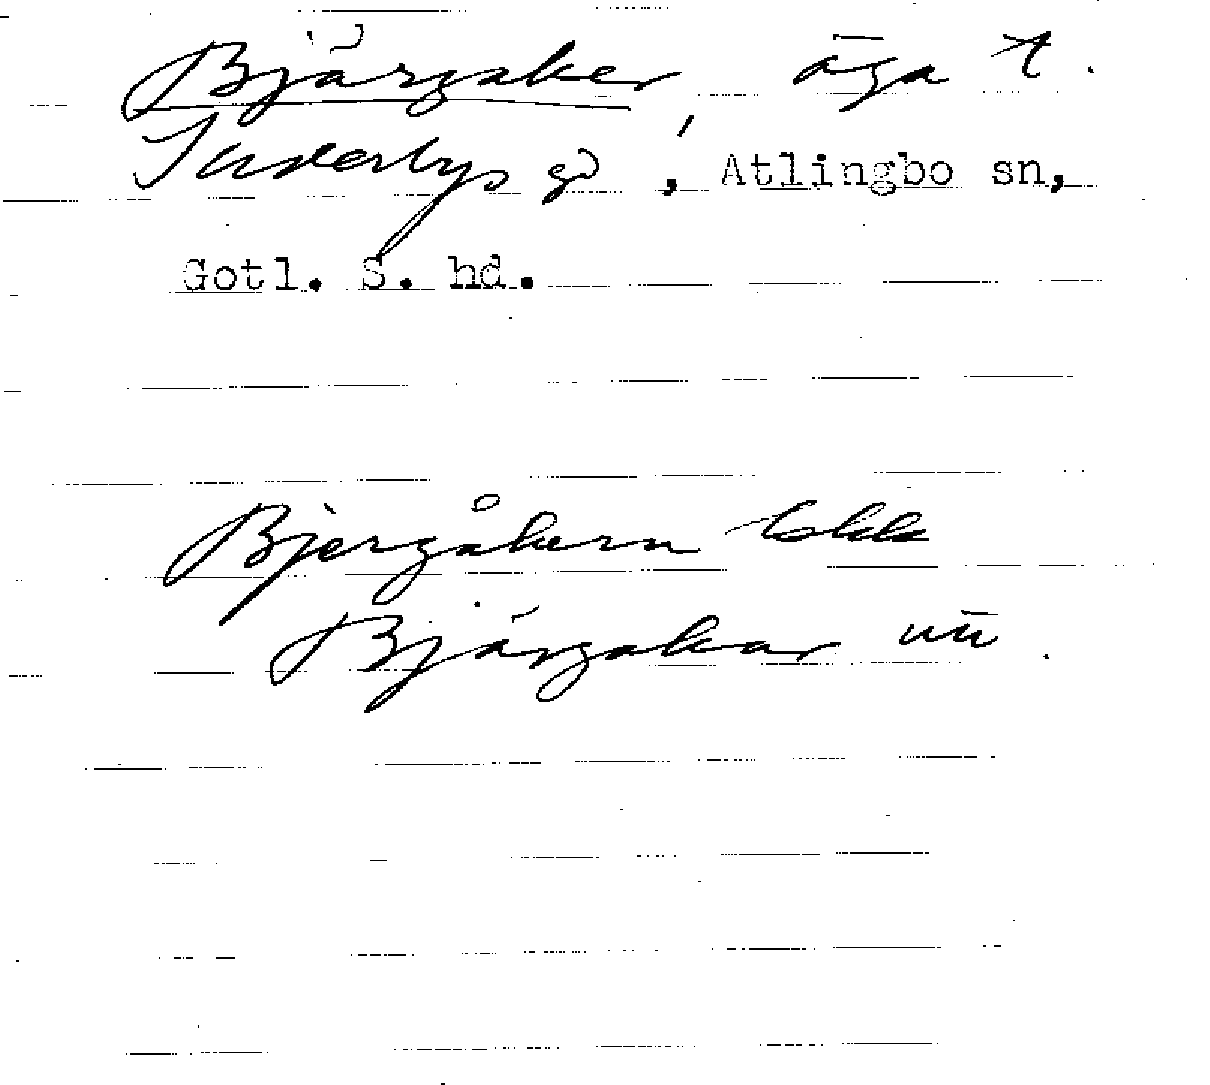 Bjärgaker, äga t.
Suderbys gd, Atlingbo sn,
Gotl. S. hd.
Bjergåkern
Bjärgakar